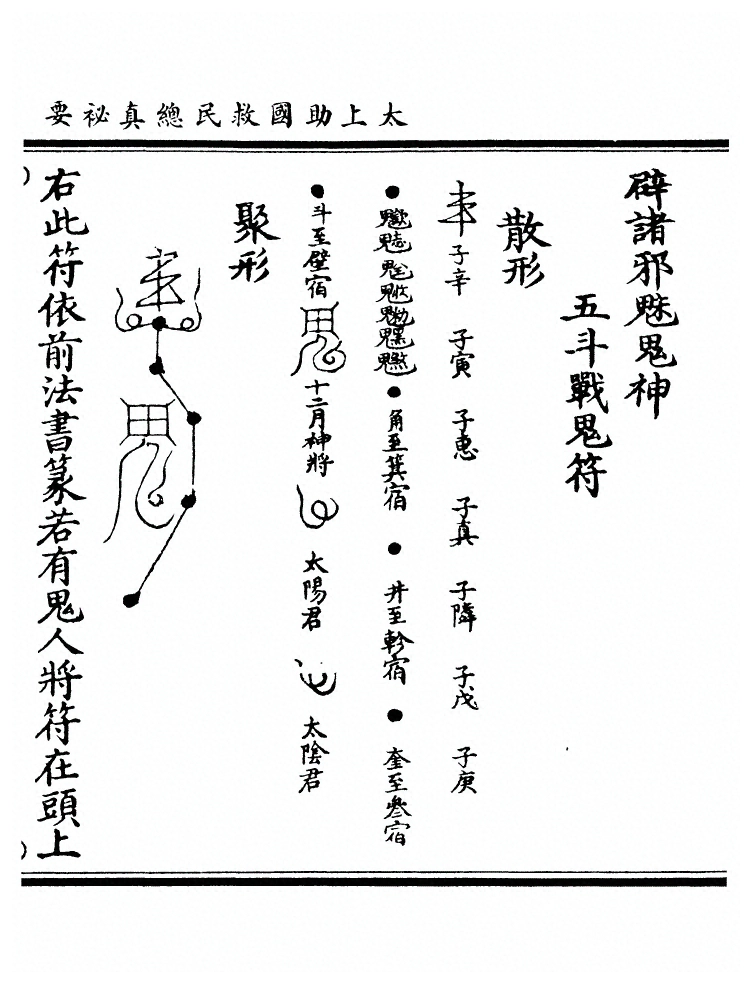 太上助國救民總真祕要
辟諸邪魅鬼神
五斗戰鬼符
散形
子辛 子寅 子惠 子真 子隣 子戊 子庚
角至箕宿 井至軫宿 奎至參宿
斗至壁宿 十二月神將 太陽君 太陰君
聚形
右此符依前法書篆若有鬼人將符在頭上